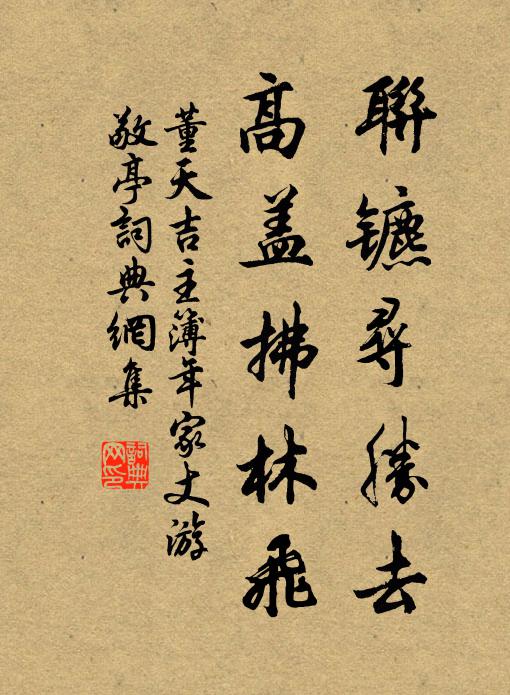 聯鑣尋勝去
高盖拂林飛
董天吉主簿年家丈游
敬亭詞典網集
詞典
网印